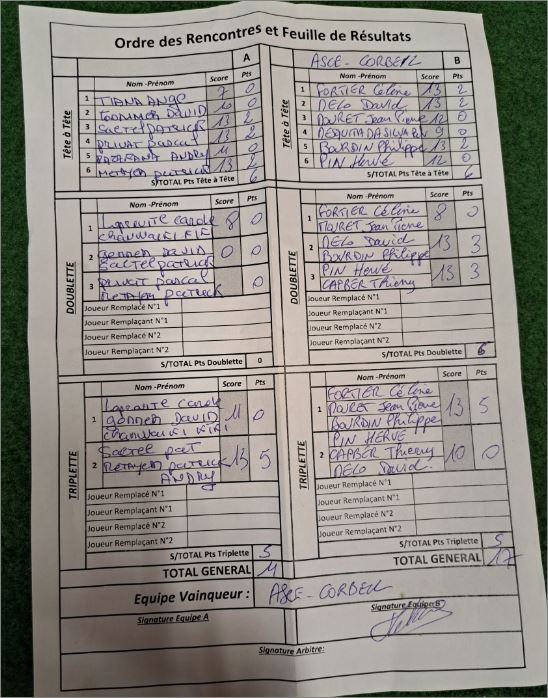 Ordre des Rencontres et Feuille de Résultats
A
ASCE - CORBEIL B
Nom -Prénom Score Pts
Nom -Prénom Score Pts
Tête à Tête
1 TIANA ANGE 7 0
2 GOMMER DAVID 10 0
3 SAETEL PATRICK 13 2
4 PRIVAT PASCAL 13 2
5 ANDRY 11 0
6 METAYER PATRICK 13 2
S/TOTAL Pts Tête à Tête 6
Tête à Tête
1 FORTIER Céline 13 2
2 DELO David 13 2
3 MOURET Jean Pierre 12 0
4 9 0
5 BOURDIN Philippe 13 2
6 PIN Hervé 12 0
S/TOTAL Pts Tête à Tête 6
DOUBLETTE
1 Carole 8 0
2 DAVID 0 0
SAETEL PATRICK
3 PRIVAT PASCAL 0
METAYER PATRICK
Joueur Remplacé N°1
Joueur Remplaçant N°1
Joueur Remplacé N°2
Joueur Remplaçant N°2
S/TOTAL Pts Doublette 0
DOUBLETTE
1 FORTIER Céline 8 0
MOURET Jean Pierre
2 DELO David 13 3
BOURDIN Philippe
3 PIN Hervé 13 3
CAPBER Thierry
Joueur Remplacé N°1
Joueur Remplaçant N°1
Joueur Remplacé N°2
Joueur Remplaçant N°2
S/TOTAL Pts Doublette 6
Nom -Prénom Score Pts
Nom -Prénom Score Pts
TRIPLETTE
1 Carole 11 0
DAVID
KIKI
2 SAETEL PAT 13 5
METAYER PATRICK
ANDRY
Joueur Remplacé N°1
Joueur Remplaçant N°1
Joueur Remplacé N°2
Joueur Remplaçant N°2
S/TOTAL Pts Triplette 5
TOTAL GENERAL 11
TRIPLETTE
1 FORTIER Céline 13 5
MOURET Jean Pierre
BOURDIN Philippe
2 PIN HERVE 10 0
CAPBER Thierry
DELO David
Joueur Remplacé N°1
Joueur Remplaçant N°1
Joueur Remplacé N°2
Joueur Remplaçant N°2
S/TOTAL Pts Triplette 5
TOTAL GENERAL 17
Equipe Vainqueur : ASCE - CORBEIL
Signature Equipe A
Signature Equipe B
Signature Arbitre: